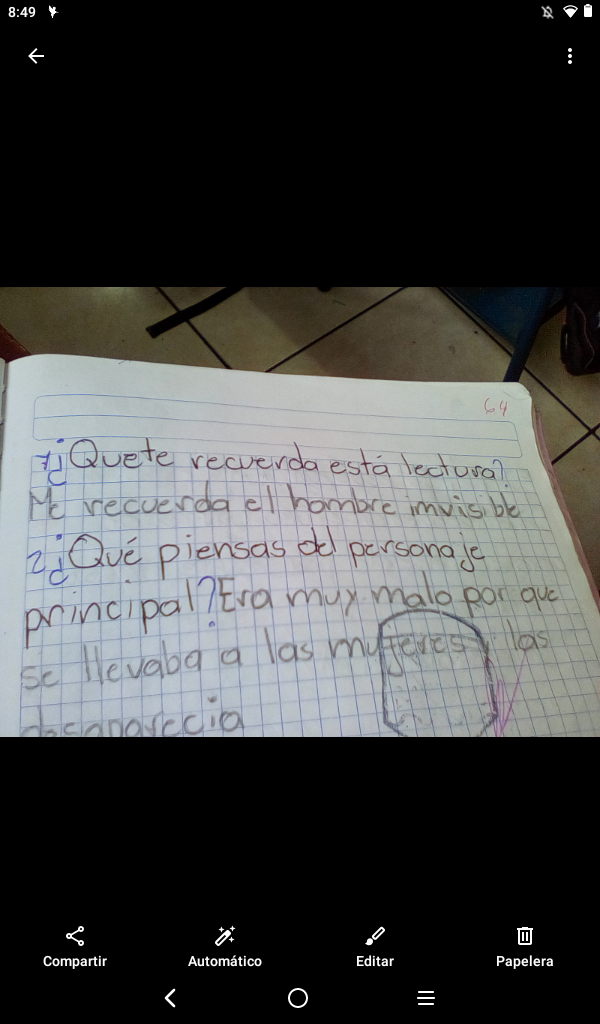 8:49
64
1¿Quete recuerda está lectura?
Me recuerda el hombre imvisible
2¿Qué piensas del personaje
principal? Era muy malo por que
se llevaba a las mujeres y las
desaparecia
Compartir Automático Editar Papelera